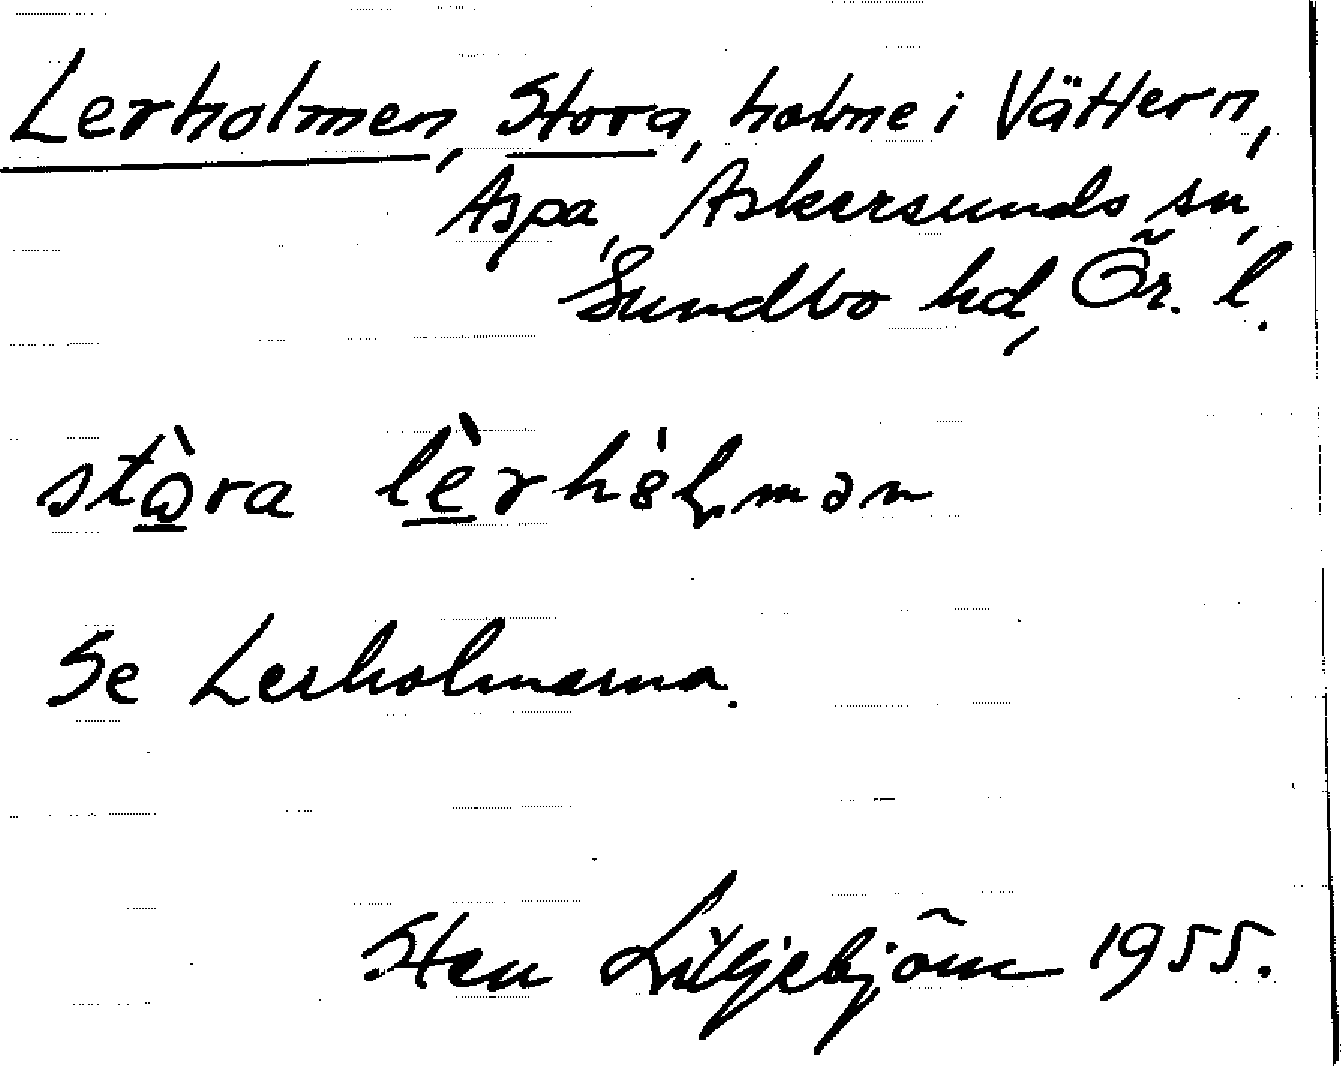 Lerholmen, Stora, holme i Vättern,
Aspa, Askersunds sn,
Sundbo hd, Ör. l.
stѡ̲̀ra lè̲rhȯ̀lmən
Se Lerholmarna.
Sten Liljebjörn 1955.